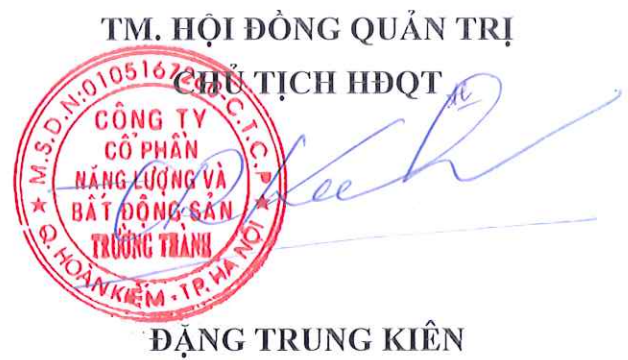 TM. HỘI ĐỒNG QUẢN TRỊ
CHỦ TỊCH HĐQT
CÔNG TY
CỔ PHẦN
NĂNG LƯỢNG VÀ
BẤT ĐỘNG SẢN
TRƯỜNG THÀNH
Q. HOÀN KIẾM - TP. HÀ NỘI
ĐẶNG TRUNG KIÊN